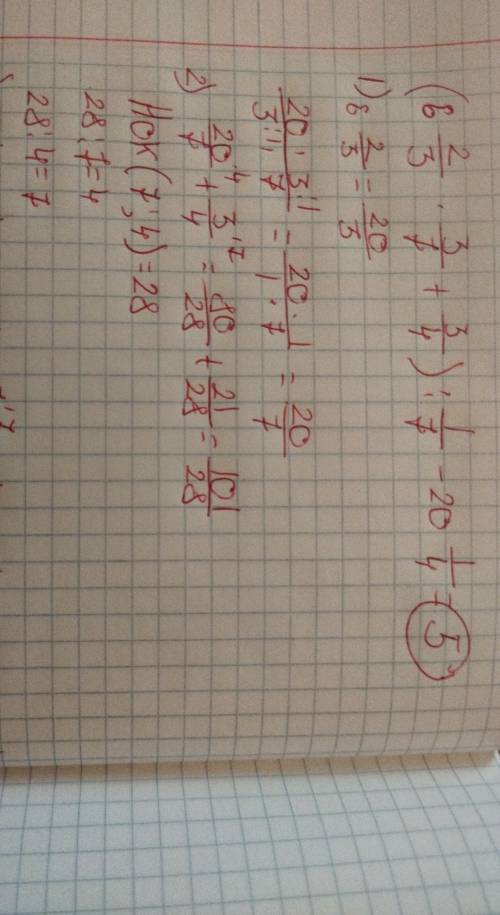 (6 2/3 · 3/7 + 3/4) : 1/7 - 20 1/4 = 5
1) 6 2/3 = 20/3
20 · 3:1 / 3:1 · 7 = 20 · 1 / 1 · 7 = 20/7
2) 20·4 / 7 + 3·7 / 4 = 80/28 + 21/28 = 101/28
НОК (7; 4) = 28
28 : 7 = 4
28 : 4 = 7